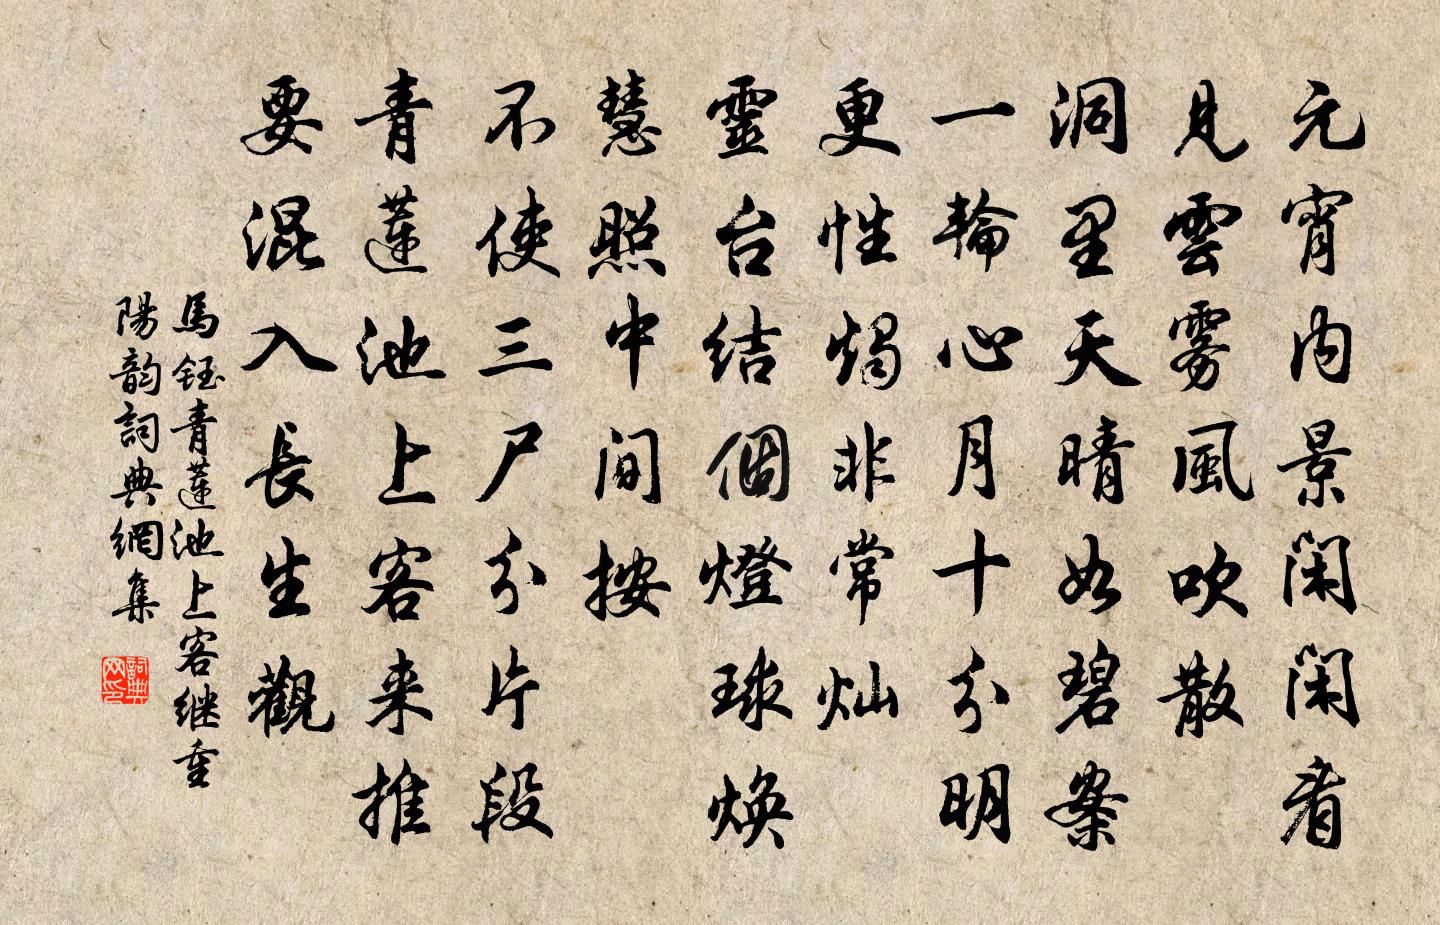 元宵内景闲闲看
見雲雾風吹散
洞里天晴如碧案
一輪心月十分明
更性燭非常灿
靈台结個燈球焕
慧照中间按
不使三尸分片段
青莲池上客来推
要混入長生觀
馬钰青莲池上客继重
陽韵詞典網集
詞典网印